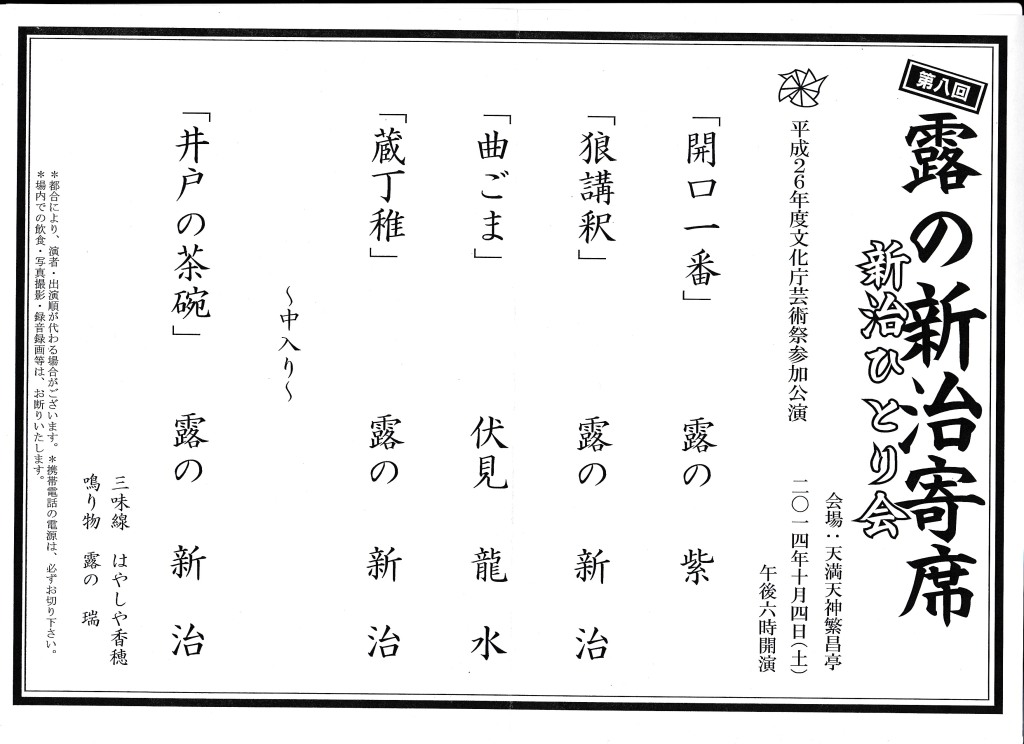 第八回
露の新治寄席
新治ひとり会
会場：天満天神繁昌亭
平成26年度文化庁芸術祭参加公演　二〇一四年十月四日（土）
午後六時開演
「開口一番」　露の　紫
「狼講釈」　露の　新治
「曲ごま」　伏見　龍水
「蔵丁稚」　露の　新治
～中入り～
「井戸の茶碗」　露の　新治
三味線　はやしや香穂
鳴り物　露の　瑞
＊都合により、演者・出演順が代わる場合がございます。＊携帯電話の電源は、必ずお切り下さい。
＊場内での飲食・写真撮影・録音録画等は、お断りいたします。